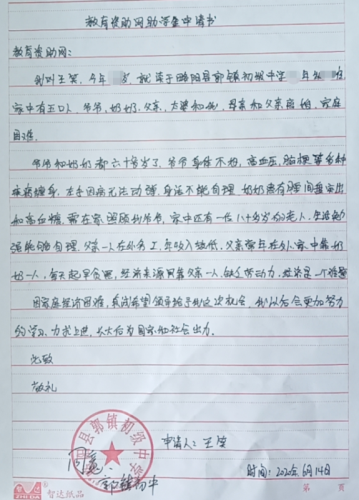 教育资助网助学金申请书
教育资助网：
我叫王莹，今年 岁，就读于 阳县郭镇初级中学 年
家中有五口人，爷爷、奶奶、父亲、太婆和我，母亲和父亲离婚，家庭
困难。
爷爷和奶奶都六十多岁了，爷爷身体不好，高血压、脑梗等多种
疾病缠身，去年因病无法动弹，生活不能自理，奶奶患有腰间盘突出
和高血糖，需在家照顾我爷爷，家中还有一位八十多岁的老人，生活勉
强能够自理，父亲一人在外务工，年收入较低，父亲常年在外，家中靠奶
奶一人，每天起早贪黑，经济来源只靠父亲一人，缺乏劳动力，
因家庭经济困难，真诚希望领导给予我这次机会，我以后会更加努力
的学习，力求上进，长大后为国家和社会出力。
此致
敬礼
申请人：王莹
县郭镇初级中学
郭镇初中
时间：2020年6月14日
智达纸品
第 页